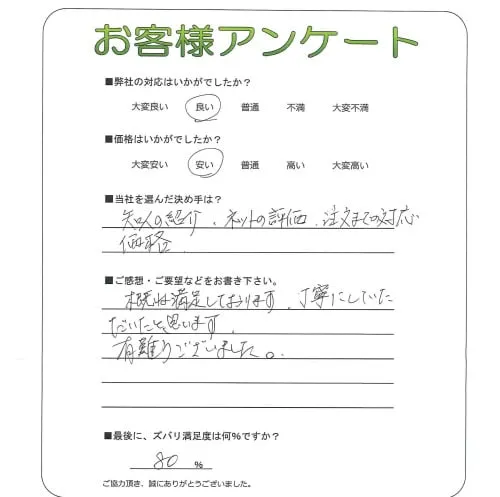 お客様アンケート
■弊社の対応はいかがでしたか？
大変良い 良い 普通 不満 大変不満
■価格はいかがでしたか？
大変安い 安い 普通 高い 大変高い
■当社を選んだ決め手は？
知人の紹介、ネットの評価、注文までの対応
価格
■ご感想・ご要望などをお書き下さい。
概ね満足しております、丁寧にしていた
だいたと思います
有難うございました。
■最後に、ズバリ満足度は何％ですか？
80 %
ご協力頂き、誠にありがとうございました。